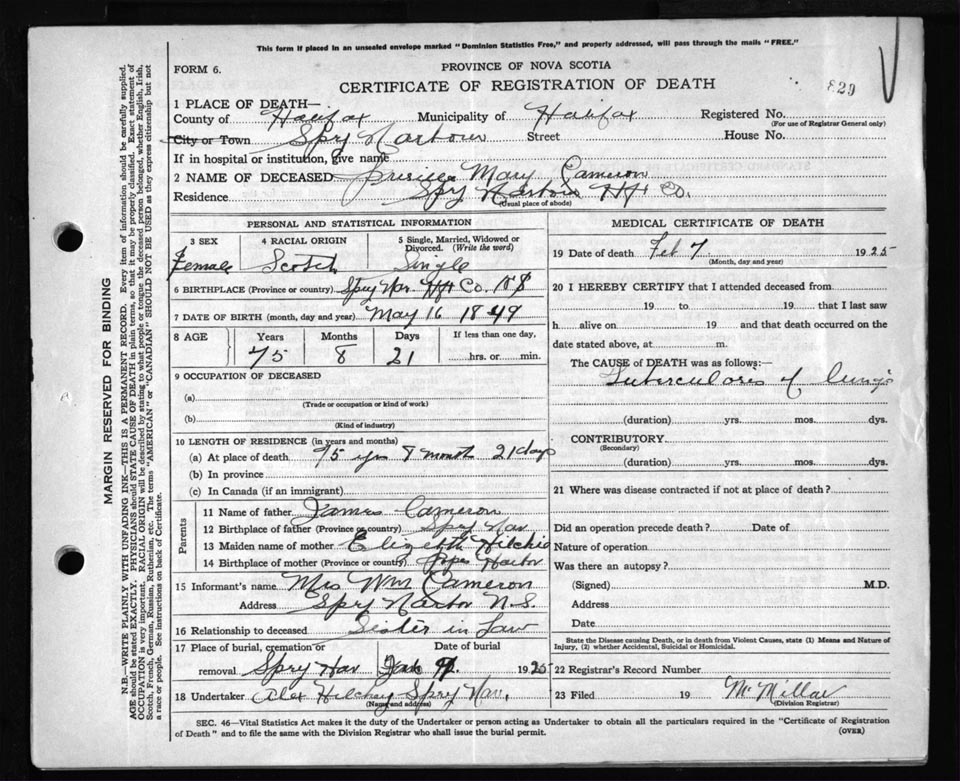 This form if placed in an unsealed envelope marked "Dominion Statistics Free," and properly addressed, will pass through the mails "FREE."
FORM 6.
PROVINCE OF NOVA SCOTIA
CERTIFICATE OF REGISTRATION OF DEATH
829
1 PLACE OF DEATH—
County of Halifax Municipality of Halifax Registered No.
(For use of Registrar General only)
City or Town Spry Harbour Street House No.
If in hospital or institution, give name
2 NAME OF DECEASED Prisiella Mary Cameron
Residence Spry Harbour Hfx Co.
(Usual place of abode)
PERSONAL AND STATISTICAL INFORMATION
3 SEX
Female
4 RACIAL ORIGIN
Scotch
5 Single, Married, Widowed or Divorced. (Write the word)
Single
6 BIRTHPLACE (Province or country) Spry Har. Hfx Co. N S
7 DATE OF BIRTH (month, day and year) May 16 1849
8 AGE Years Months Days If less than one day,
75 8 21 hrs. or min.
9 OCCUPATION OF DECEASED
(a)
(Trade or occupation or kind of work)
(b)
(Kind of industry)
10 LENGTH OF RESIDENCE (in years and months)
(a) At place of death 75 yrs 8 month 21 days
(b) In province
(c) In Canada (if an immigrant)
Parents
11 Name of father James Cameron
12 Birthplace of father (Province or country) Spry Har
13 Maiden name of mother Elizebth Hilchie
14 Birthplace of mother (Province or country) Popes Harbor
15 Informant's name Mrs Wm Cameron
Address Spry Harbor N.S.
16 Relationship to deceased Sister in Law
17 Place of burial, cremation or removal Spry Har
Date of burial 9 1925
18 Undertaker Alex Hilchey Spry Har.
(Name and address)
MEDICAL CERTIFICATE OF DEATH
19 Date of death Feb 7 1925
(Month, day and year)
20 I HEREBY CERTIFY that I attended deceased from
19 to 19 that I last saw
h alive on 19 and that death occurred on the
date stated above, at m.
The CAUSE of DEATH was as follows:—
Tuberculores of lungs
(duration) yrs. mos. dys.
CONTRIBUTORY
(Secondary)
(duration) yrs. mos. dys.
21 Where was disease contracted if not at place of death?
Did an operation precede death? Date of
Nature of operation
Was there an autopsy?
(Signed) M.D.
Address
Date
State the Disease causing Death, or in death from Violent Causes, state (1) Means and Nature of Injury, (2) whether Accidental, Suicidal or Homicidal.
22 Registrar's Record Number
23 Filed 19 McMillar
(Division Registrar)
SEC. 46—Vital Statistics Act makes it the duty of the Undertaker or person acting as Undertaker to obtain all the particulars required in the "Certificate of Registration
of Death" and to file the same with the Division Registrar who shall issue the burial permit.
(OVER)
MARGIN RESERVED FOR BINDING
N.B.—WRITE PLAINLY WITH UNFADING INK—THIS IS A PERMANENT RECORD. Every item of information should be carefully supplied.
AGE should be stated EXACTLY. PHYSICIANS should STATE CAUSE OF DEATH in plain terms, so that it may be properly classified. Exact statement of
OCCUPATION is very important. RACIAL ORIGIN will be described by stating to what people or tongue the deceased person belonged, whether English, Irish,
Scotch, French, German, Russian, Ruthenian, etc. The terms "AMERICAN" or "CANADIAN" SHOULD NOT BE USED as they express citizenship but not
a race or people. See instructions on back of Certificate.